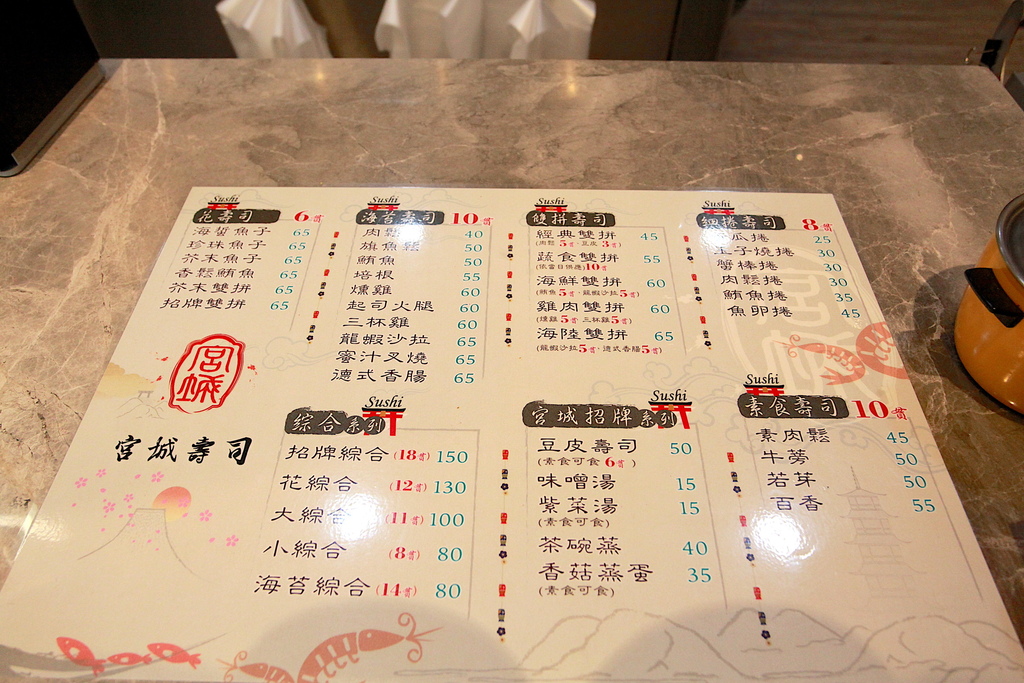 Sushi
花壽司 6貫
海蜇魚子 65
珍珠魚子 65
芥末魚子 65
香鬆鮪魚 65
芥末雙拼 65
招牌雙拼 65
Sushi
海苔壽司 10貫
肉鬆 40
旗魚鬆 50
鮪魚 50
培根 55
燻雞 60
起司火腿 60
三杯雞 60
龍蝦沙拉 65
蜜汁叉燒 65
德式香腸 65
Sushi
雙拼壽司
經典雙拼 45
(肉鬆5貫、豆皮3貫)
蔬食雙拼 55
(依當日供應)10貫
海鮮雙拼 60
(鮪魚5貫、龍蝦沙拉5貫)
雞肉雙拼 60
(燻雞5貫 三杯雞5貫)
海陸雙拼 65
(龍蝦沙拉5貫、德式香腸5貫)
Sushi
細捲壽司 8貫
瓜捲 25
玉子燒捲 30
蟹棒捲 30
肉鬆捲 30
鮪魚捲 35
魚卵捲 45
宮城
宮城壽司
Sushi
綜合系列
招牌綜合 (18貫) 150
花綜合 (12貫) 130
大綜合 (11貫) 100
小綜合 (8貫) 80
海苔綜合 (14貫) 80
Sushi
宮城招牌系列
豆皮壽司 50
(素食可食 6貫)
味噌湯 15
紫菜湯 15
(素食可食)
茶碗蒸 40
香菇蒸蛋 35
(素食可食)
Sushi
素食壽司 10貫
素肉鬆 45
牛蒡 50
若芽 50
百香 55